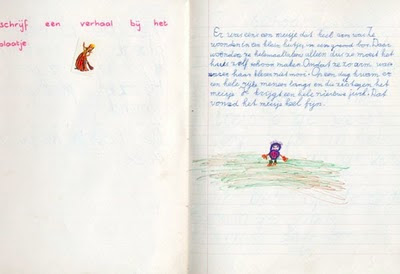 schrijf een verhaal bij het
plaatje
Er was eens een meisje dat heel arm was. Ze
woonde in een klein hutje, in een groot bos. Daar
woonde ze helemaal alleen dus ze moest het
huis zelf schoon maken. Omdat ze zo arm was
waren haar kleren niet mooi. Op een dag kwam er
een hele rijke meneer langs en die zag het
meisje. Ze krijgt een hele nieuwe jurk. Dat
vond het meisje heel fijn.